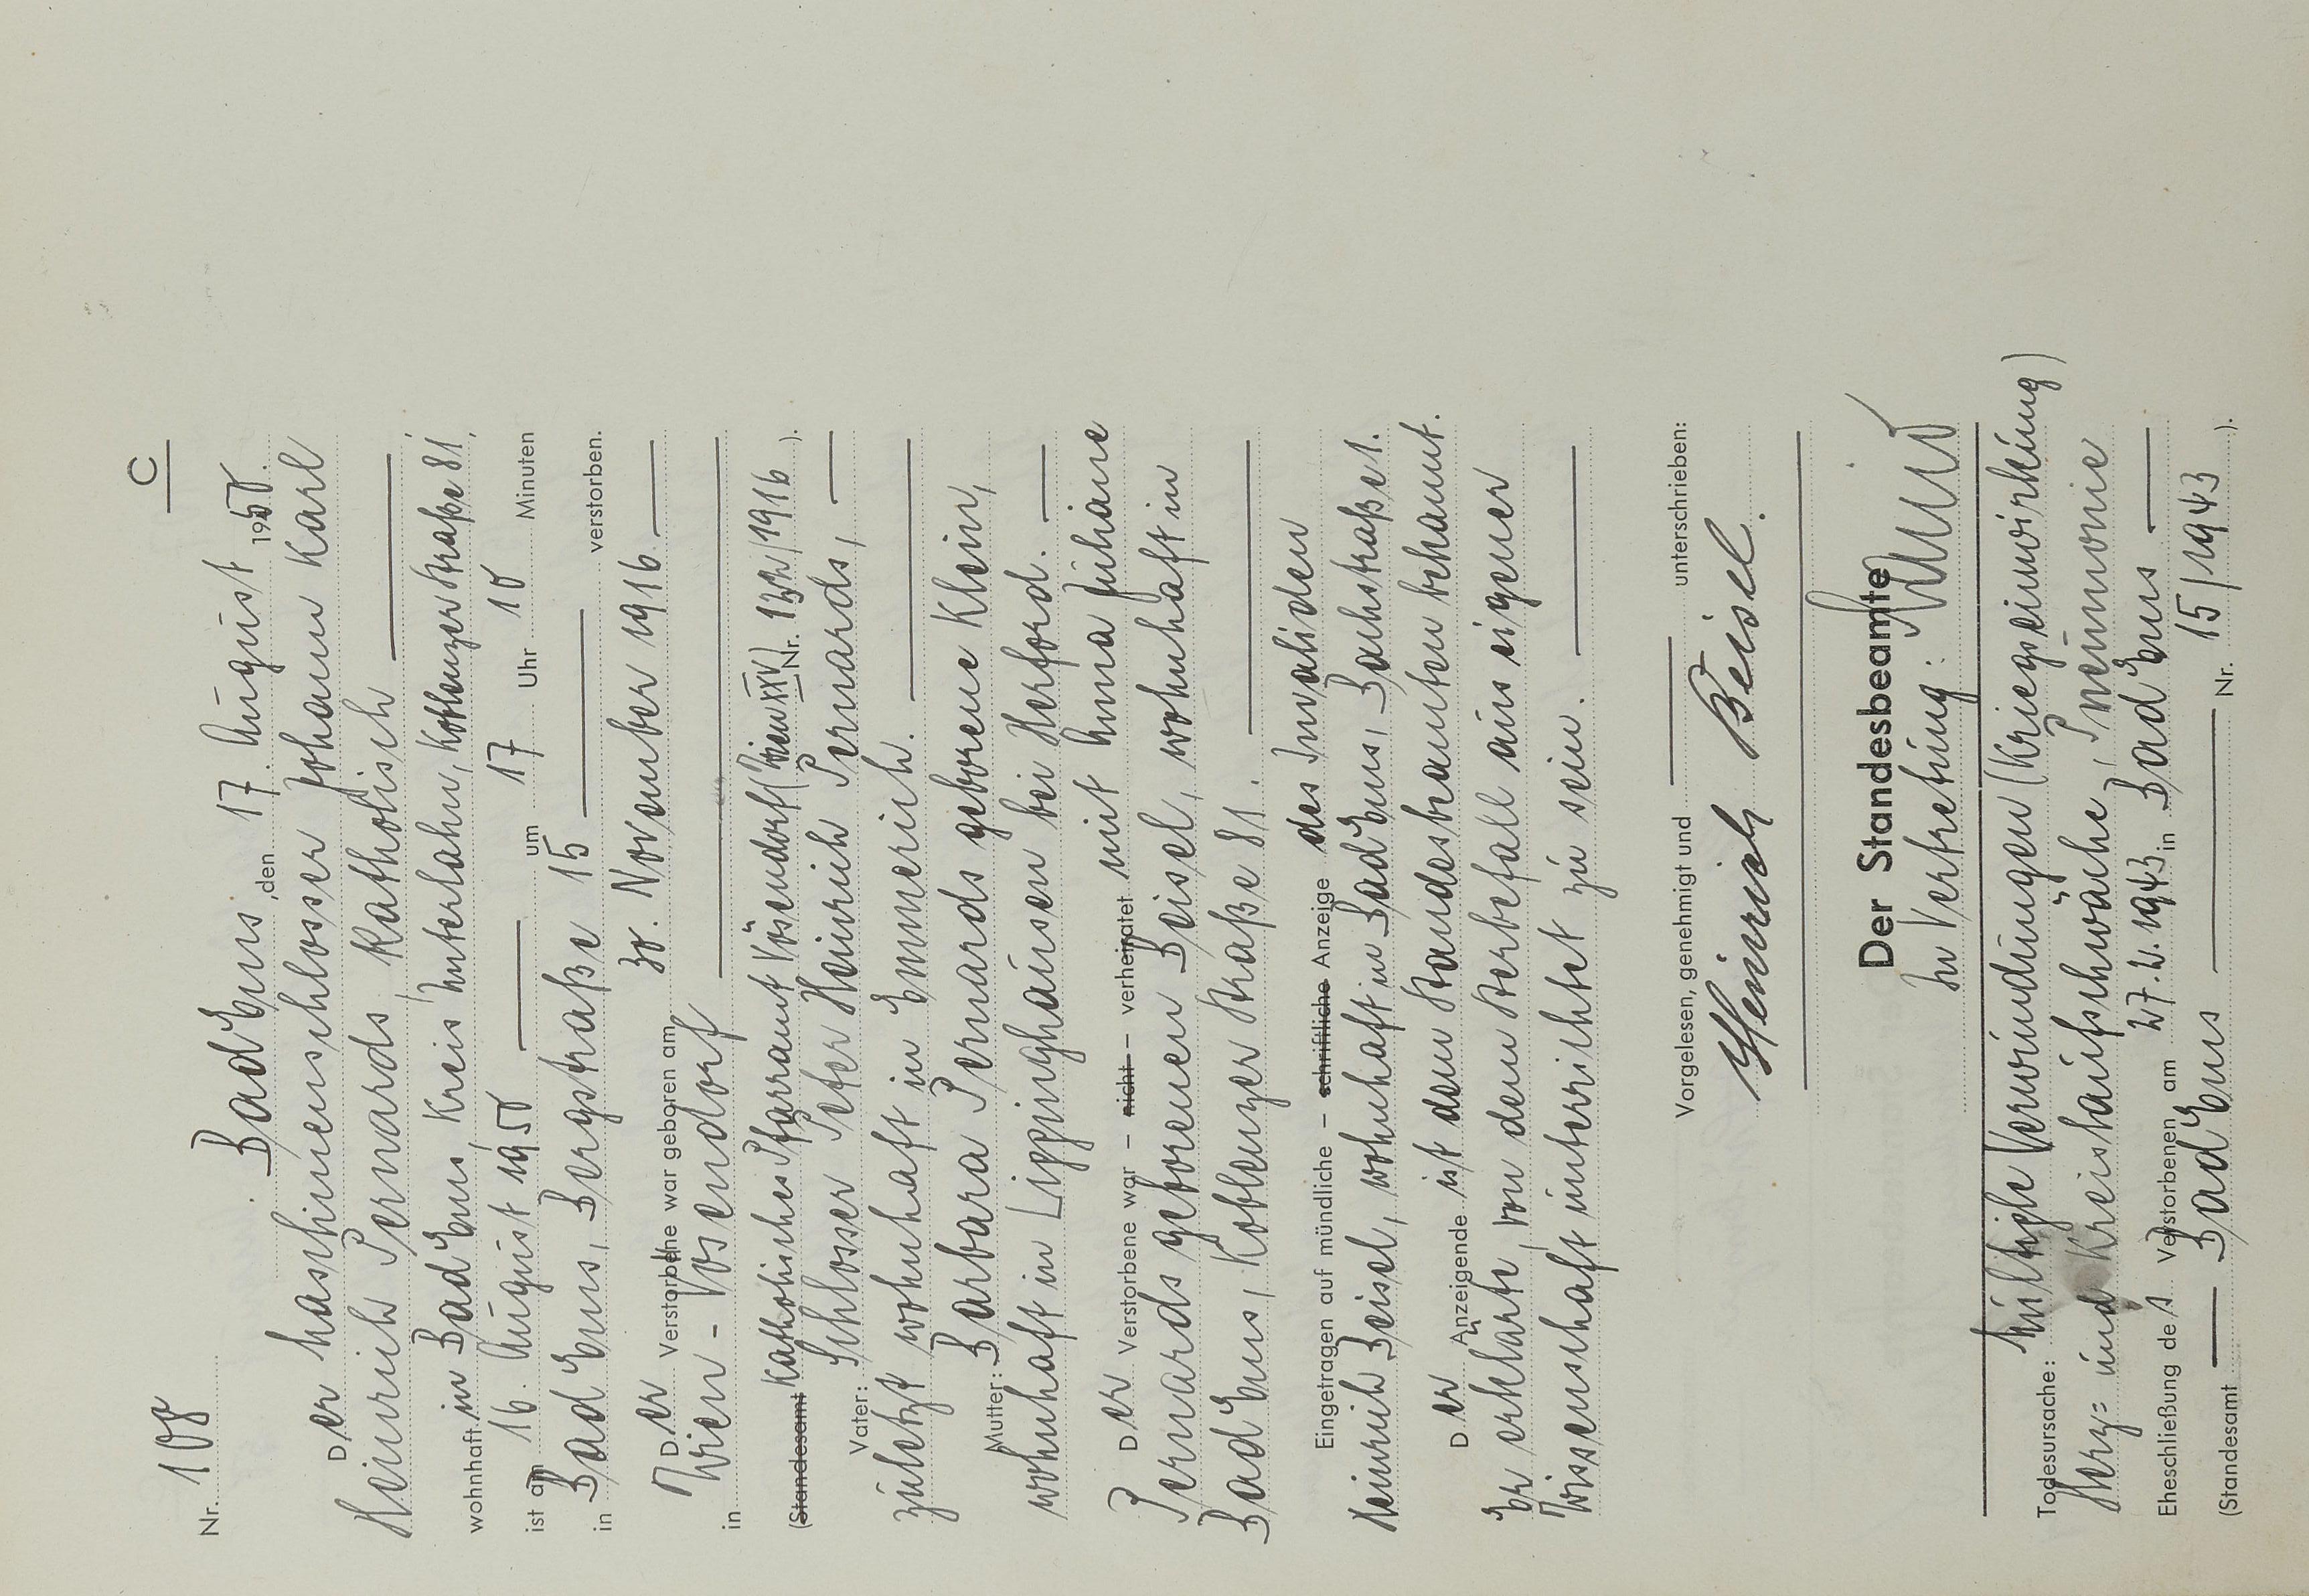 C
Nr. 108
Bad Ems, den 17. August 1950.
Der Maschinenschlosser Johann Karl
Heinrich Pernards, katholisch
wohnhaft in Bad Ems, Kreis Unterlahn, Koblenzer Straße 81,
ist am 16. August 1950 um 17 Uhr 10 Minuten
in Bad Ems, Bergstraße 15 verstorben.
Der Verstorbene war geboren am 30. November 1916
in Wien - Vosendorf
(Standesamt Katholisches Pfarramt Vösendorf (Wien XXV) Nr. 132/1916).
Vater: Schlosser Peter Heinrich Pernards,
zuletzt wohnhaft in Emmerich.
Mutter: Barbara Pernards geborene Klein,
wohnhaft in Lippinghausen bei Herford.
Der Verstorbene war – nicht – verheiratet mit Anna Juliane
Pernards geborenen Beisel, wohnhaft in
Bad Ems, Koblenzer Straße 81.
Eingetragen auf mündliche – schriftliche Anzeige des Invaliden
Heinrich Beisel, wohnhaft in Bad Ems, Bachstraße 1.
Der Anzeigende ist dem Standesbeamten bekannt.
Er erklärte, von dem Sterbefall aus eigener
Wissenschaft unterrichtet zu sein.
Vorgelesen, genehmigt und unterschrieben:
Heinrich Beisel.
Der Standesbeamte
In Vertretung:
Todesursache: Multiple Verwundungen (Kriegseinwirkung)
Herz= und Kreislaufschwäche, Pneumonie
Eheschließung des Verstorbenen am 27.2.1943 in Bad Ems
(Standesamt Bad Ems Nr. 15/1943).